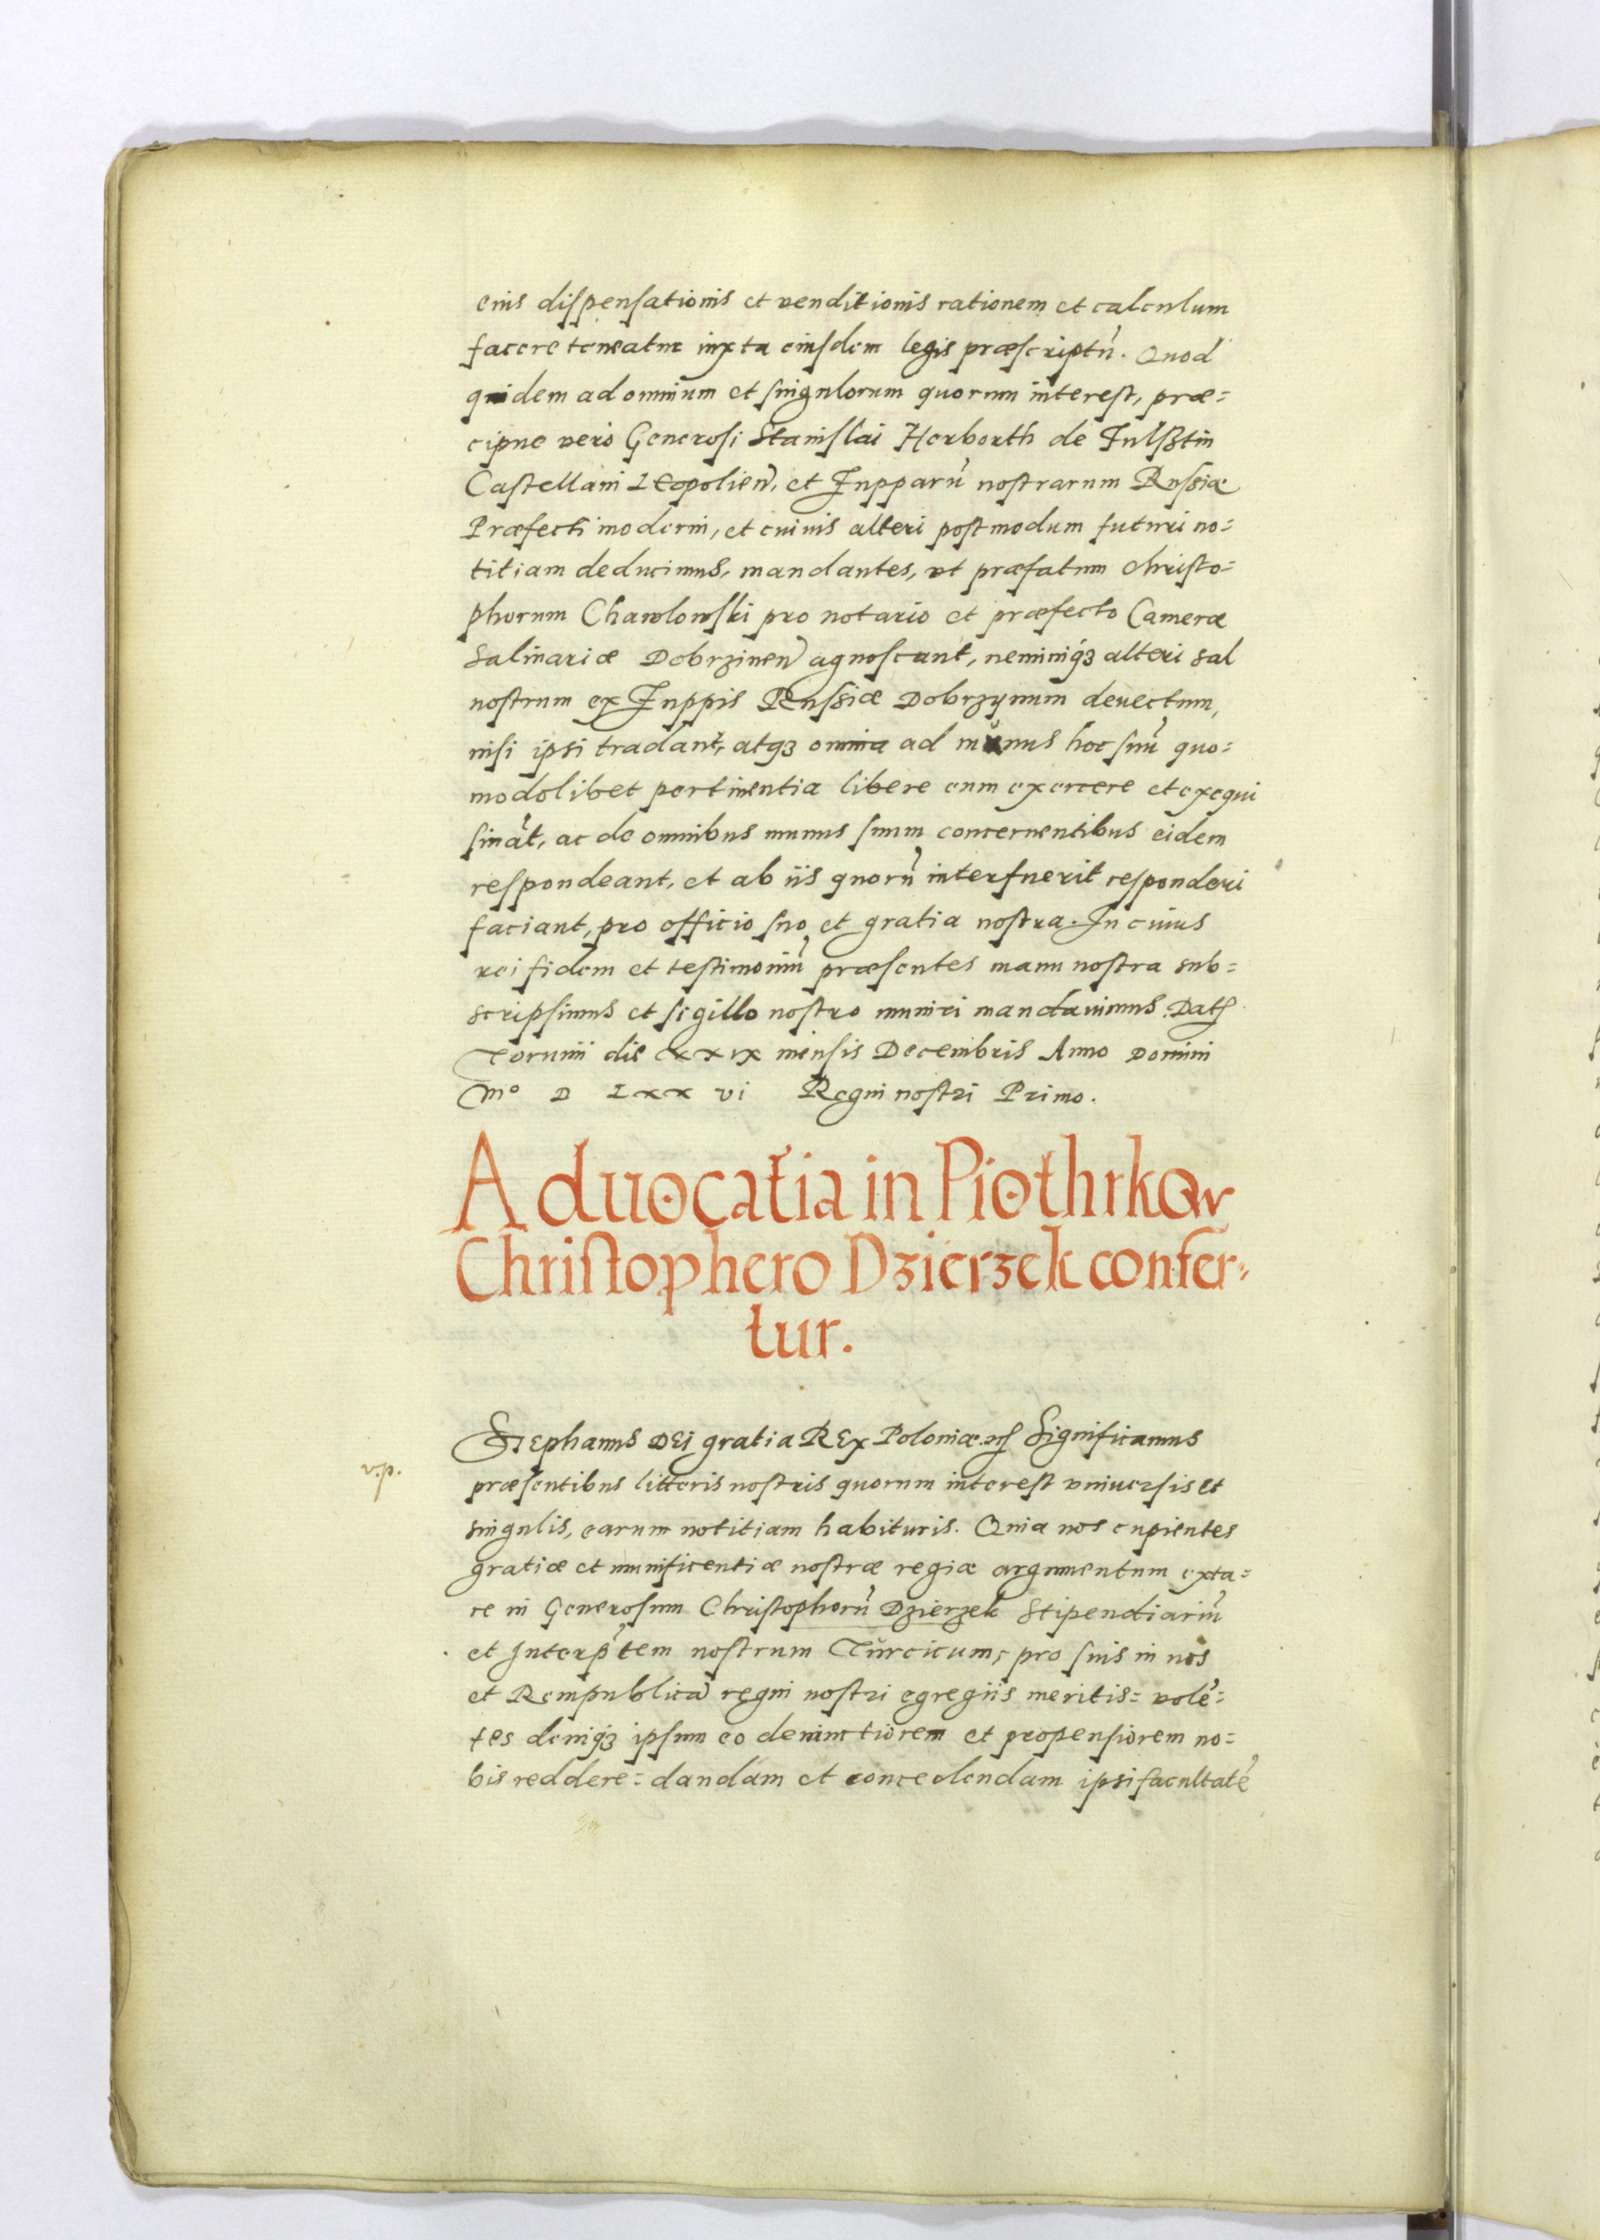 eius dispensationis et venditionis rationem et calculum
facere teneatur iuxta eiusdem legis præscriptū. Quod
quidem ad omnium et singulorum quorum interest, præ=
cipue vero Generosi Stanislai Herborth de Fulsztin
Castellani Leopolien̄, et Zupparū nostrarum Russiæ
Præfecti moderni, et cuiuis alteri postmodum futuri no=
titiam deducimus, mandantes, vt præfatum Christo=
phorum Chawlowski pro notario et præfecto Cameræ
Salinariæ Dobrzinen̄ agnoscant, neminiq₃ alteri sal
nostrum ex Zuppis Russiæ Dobrzynum deuectum,
nisi ipsi tradant, atq₃ omnia ad munus hoc suū quo=
modolibet pertinentia libere eum exercere et exequi
sināt, ac de omnibus munus suum concernentibus eidem
respondeant, et ab iis quorū interfuerit responderi
faciant, pro officio suo et gratia nostra. In cuius
rei fidem et testimoniū præsentes manu nostra sub=
scripsimus et sigillo nostro muniri mandauimus. Datꝭ
Torunii die xxix mensis Decembris Anno Domini
Mº D Lxx vi Regni nostri Primo.
Aduocatia in Piothrkow
Christophero Dzierzek confer=
tur.
Stephanus DEi gratia REx Poloniæ ꝛcꝭ Significamus
v.p.
præsentibus litteris nostris quorum interest vniuersis et
singulis, earum notitiam habituris. Quia nos cupientes
gratiæ et munificentiæ nostræ regiæ argumentum exta=
re in Generosum Christophorū Dzierzek Stipendiariū
et Interp̄tem nostrum Turcicum, pro suis in nos
et Rempublicā regni nostri egregiis meritis= volē=
tes deniq₃ ipsum eo deuinctiorem et propensiorem no=
bis reddere= dandam et concedendam ipsi facultatē